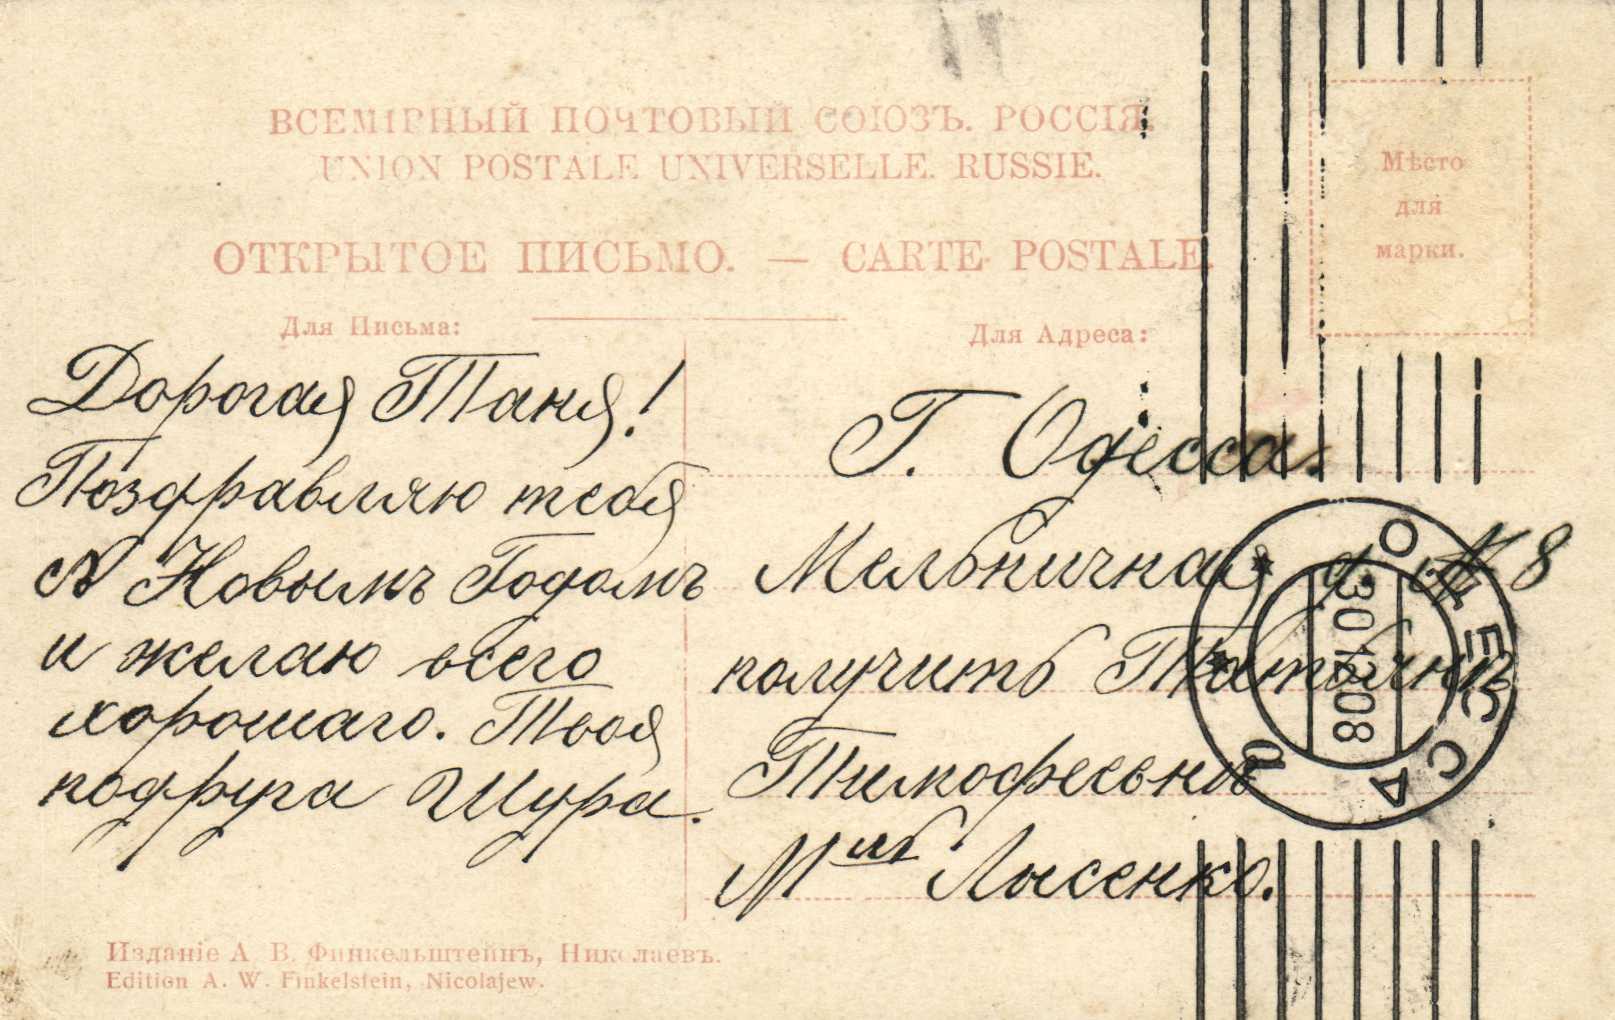 ВСЕМІРНЫЙ ПОЧТОВЫЙ СОЮЗЪ. РОССІЯ.
UNION POSTALE UNIVERSELLE. RUSSIE.
Мѣсто
для
марки.
ОТКРЫТОЕ ПИСЬМО. — CARTE POSTALE.
Для Письма:
Дорогая Таня!
Поздравляю тебя
с Новымъ Годомъ
и желаю всего
хорошаго. Твоя
подруга Шура.
Для Адреса:
Г. Одесса.
Мельничная д. № 8
получить Татьянѣ
Тимофеевнѣ
М-ль Лысенко.
ОДЕССА
30 12 08
Изданіе А. В. Финкельштейнъ, Николаевъ.
Edition A. W. Finkelstein, Nicolajew.